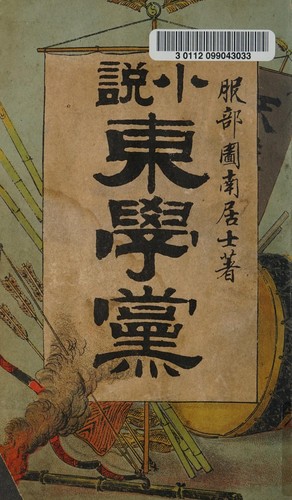 3 0112 099043033
服部圖南居士著
小説
東學黨